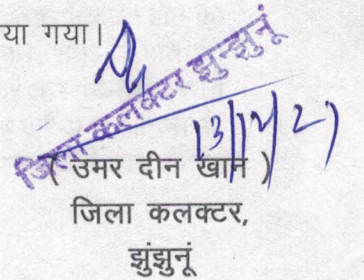 या गया।
जिला कलक्टर झुन्झुनूं
13/12/21
( उमर दीन खान )
जिला कलक्टर,
झुंझुनूं